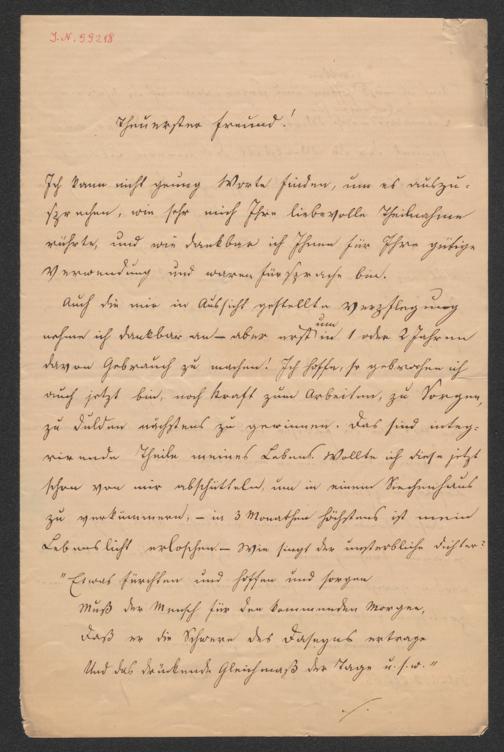 I.N. 59218
Theuerster Freund!
Ich kann nicht genug Worte finden, um es auszu-
sprechen, wie sehr mich Ihre liebevolle Theilnahme
rührte, und wie dankbar ich Ihnen für Ihre gütige
Verwendung und waren Fürsprache bin.
Auch die mir in Aussicht gestellte Verpflegung
nehme ich dankbar an – aber erst um in 1 oder 2 Jahren
davon Gebrauch zu machen! Ich hoffe, so gebrochen ich
auch jetzt bin, noch Kraft zum Arbeiten, zu Sorgen,
zu dulden nächstens zu gewinnen. Das sind integ-
rirende Theile meines Lebens. Wollte ich diese jetzt
schon von mir abschütteln, um in einem Siechenhaus
zu verkümmern, – in 3 Monathen höchstens ist mein
Lebenslicht erloschen. – Wie singt der unsterbliche Dichter:
"Etwas fürchten und hoffen und sorgen
Muß der Mensch für den kommenden Morgen,
Daß er die Schwere des Daseyns ertrage
Und das drückende Gleichmaß der Tage u.s.w."